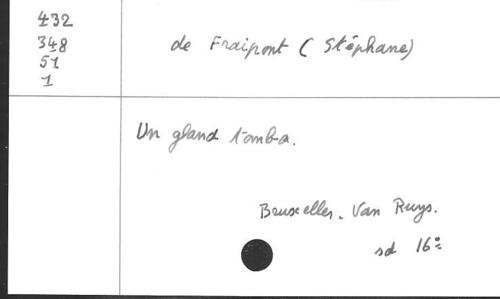 432
348
51
1
de Fraipont (Stéphane)
Un gland tomba.
Bruxelles. Van Ruys.
sd 16º